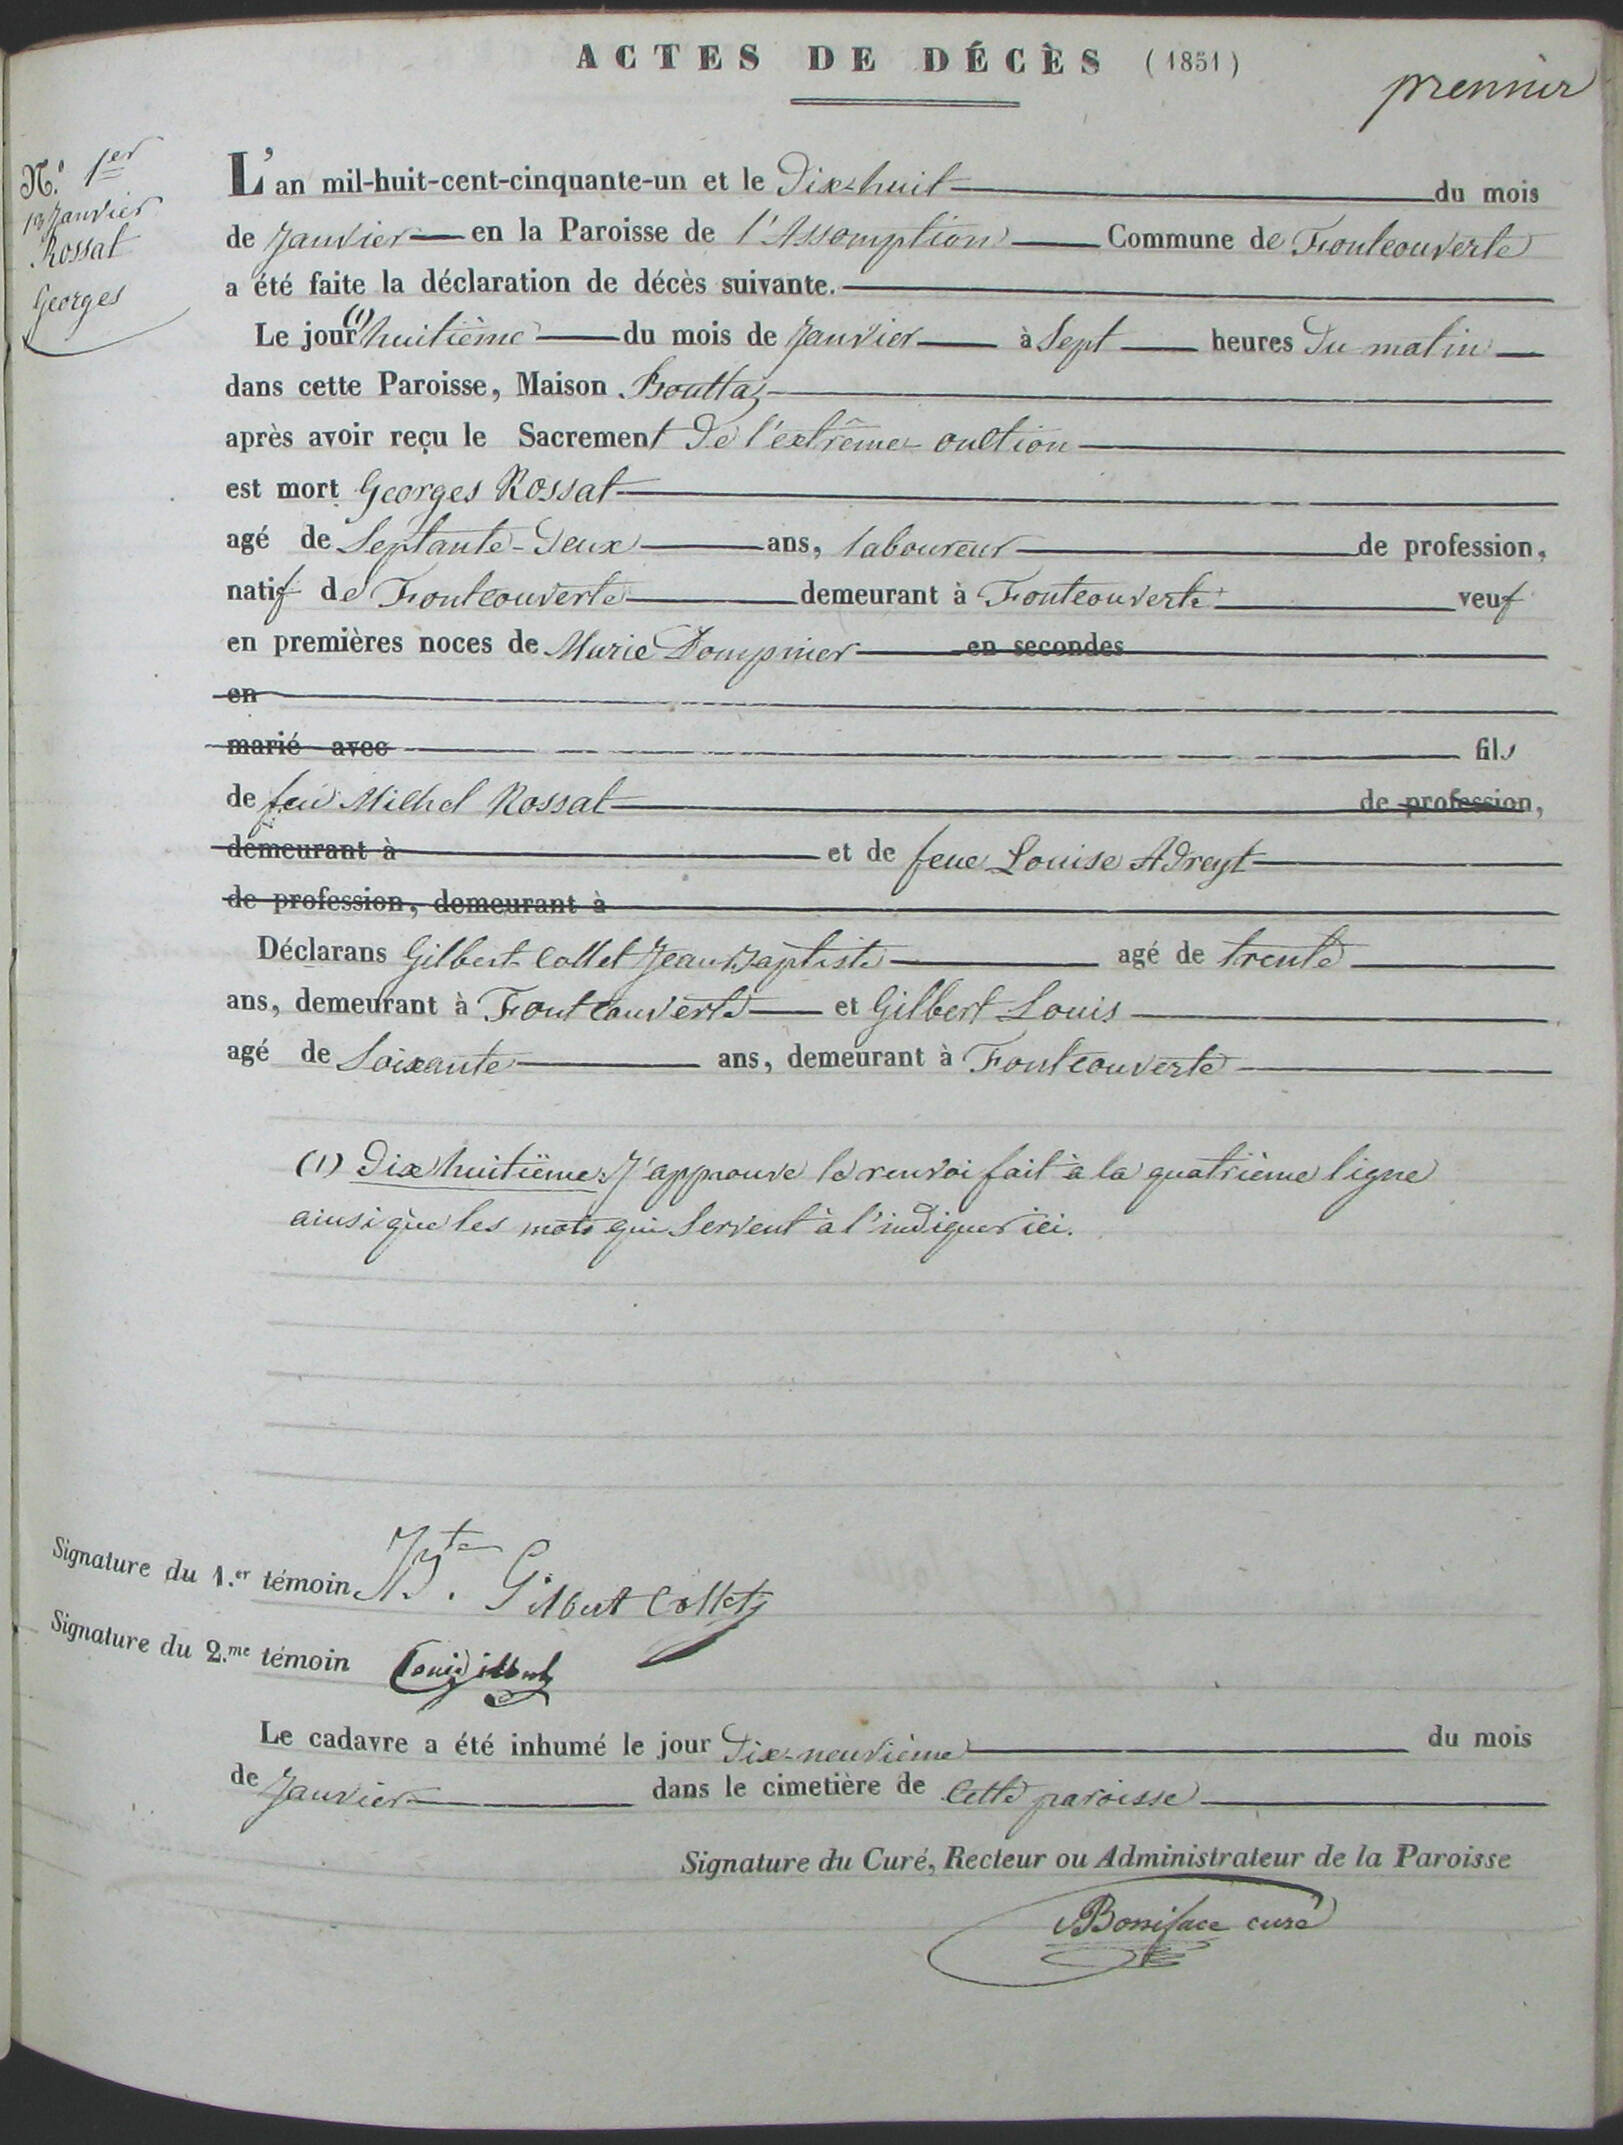 ACTES DE DÉCÈS (1851)
premier
N.° 1er
Janvier
Rossat
Georges
L'an mil-huit-cent-cinquante-un et le Dix-huit du mois
de Janvier en la Paroisse de l'Assomption Commune de Fontcouverte
a été faite la déclaration de décès suivante.
Le jour (1) huitième du mois de Janvier à Sept heures Du matin
dans cette Paroisse, Maison Bouttaz
après avoir reçu le Sacrement De l'extrême onction
est mort Georges Rossat
agé de Septante-Deux ans, laboureur de profession,
natif de Fontcouverte demeurant à Fontcouverte veuf
en premières noces de Marie Dompnier en secondes
en
marié avec fils
de feu Michel Rossat de profession,
demeurant à et de feue Louise Adreyt
de profession, demeurant à
Déclarans Gilbert Collet Jean Baptiste agé de trente
ans, demeurant à Fontcouverte et Gilbert Louis
agé de Soixante ans, demeurant à Fontcouverte
(1) Dix huitième: J'approuve le renvoi fait à la quatrième ligne
ainsi que les mots qui servent à l'indiquer ici.
Signature du 1.er témoin J Bte. Gilbert Collet
Signature du 2.me témoin Louis Gilbert
Le cadavre a été inhumé le jour Dix-neuvième du mois
de Janvier dans le cimetière de Cette paroisse
Signature du Curé, Recteur ou Administrateur de la Paroisse
Boniface curé